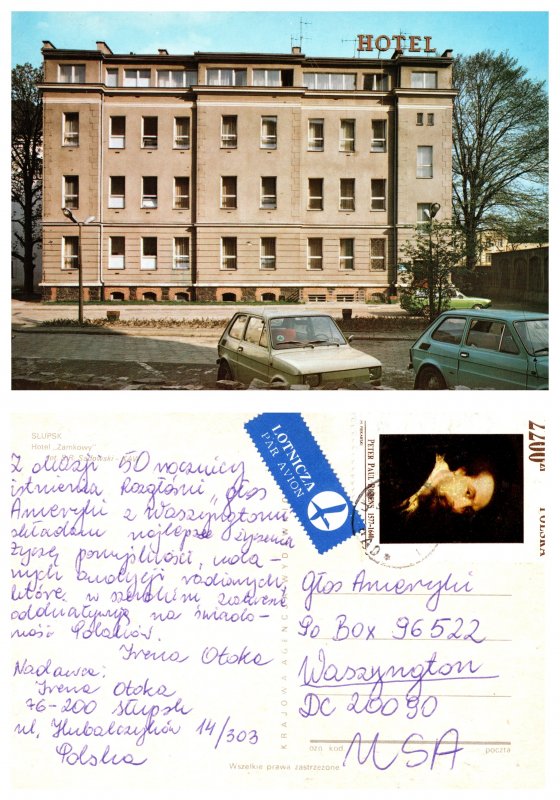 HOTEL
SŁUPSK
Hotel „Zamkowy"
fot.
Z okazji 50 rocznicy
istnienia Rozgłośni „Głos
Ameryki z Waszyngtonu
składam najlepsze życzenia
Życzę pomyślności,
audycji radiowych,
które w szerokim zakresie
oddziaływują na świado-
mość Polaków.
Irena Otoka
Nadawca:
Irena Otoka
76-200 Słupsk
ul. Hubalczyków 14/303
Polska
LOTNICZA
PAR AVION
PETER PAUL RUBENS 1577-1640
700
POLSKA
KRAJOWA AGENCJA WYD
Głos Ameryki
Po Box 96522
Waszyngton
DC 20090
USA
ozn. kod
poczta
Wszelkie prawa zastrzeżone